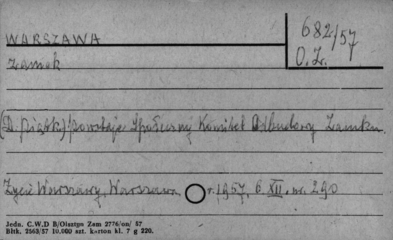 WARSZAWA
682/57
Zamek
O.Z.
(D. Piątk.) powstaje Społeczny Komitet Odbudowy Zamku.
Życie Warszawy, Warszawa r. 1957, 6.XII, nr. 290
Jedn. C.W.D B/Olsztyn Zam 2776/on/ 57
Bltk. 2563/57 10.000 szt. karton kl. 7 g 220.